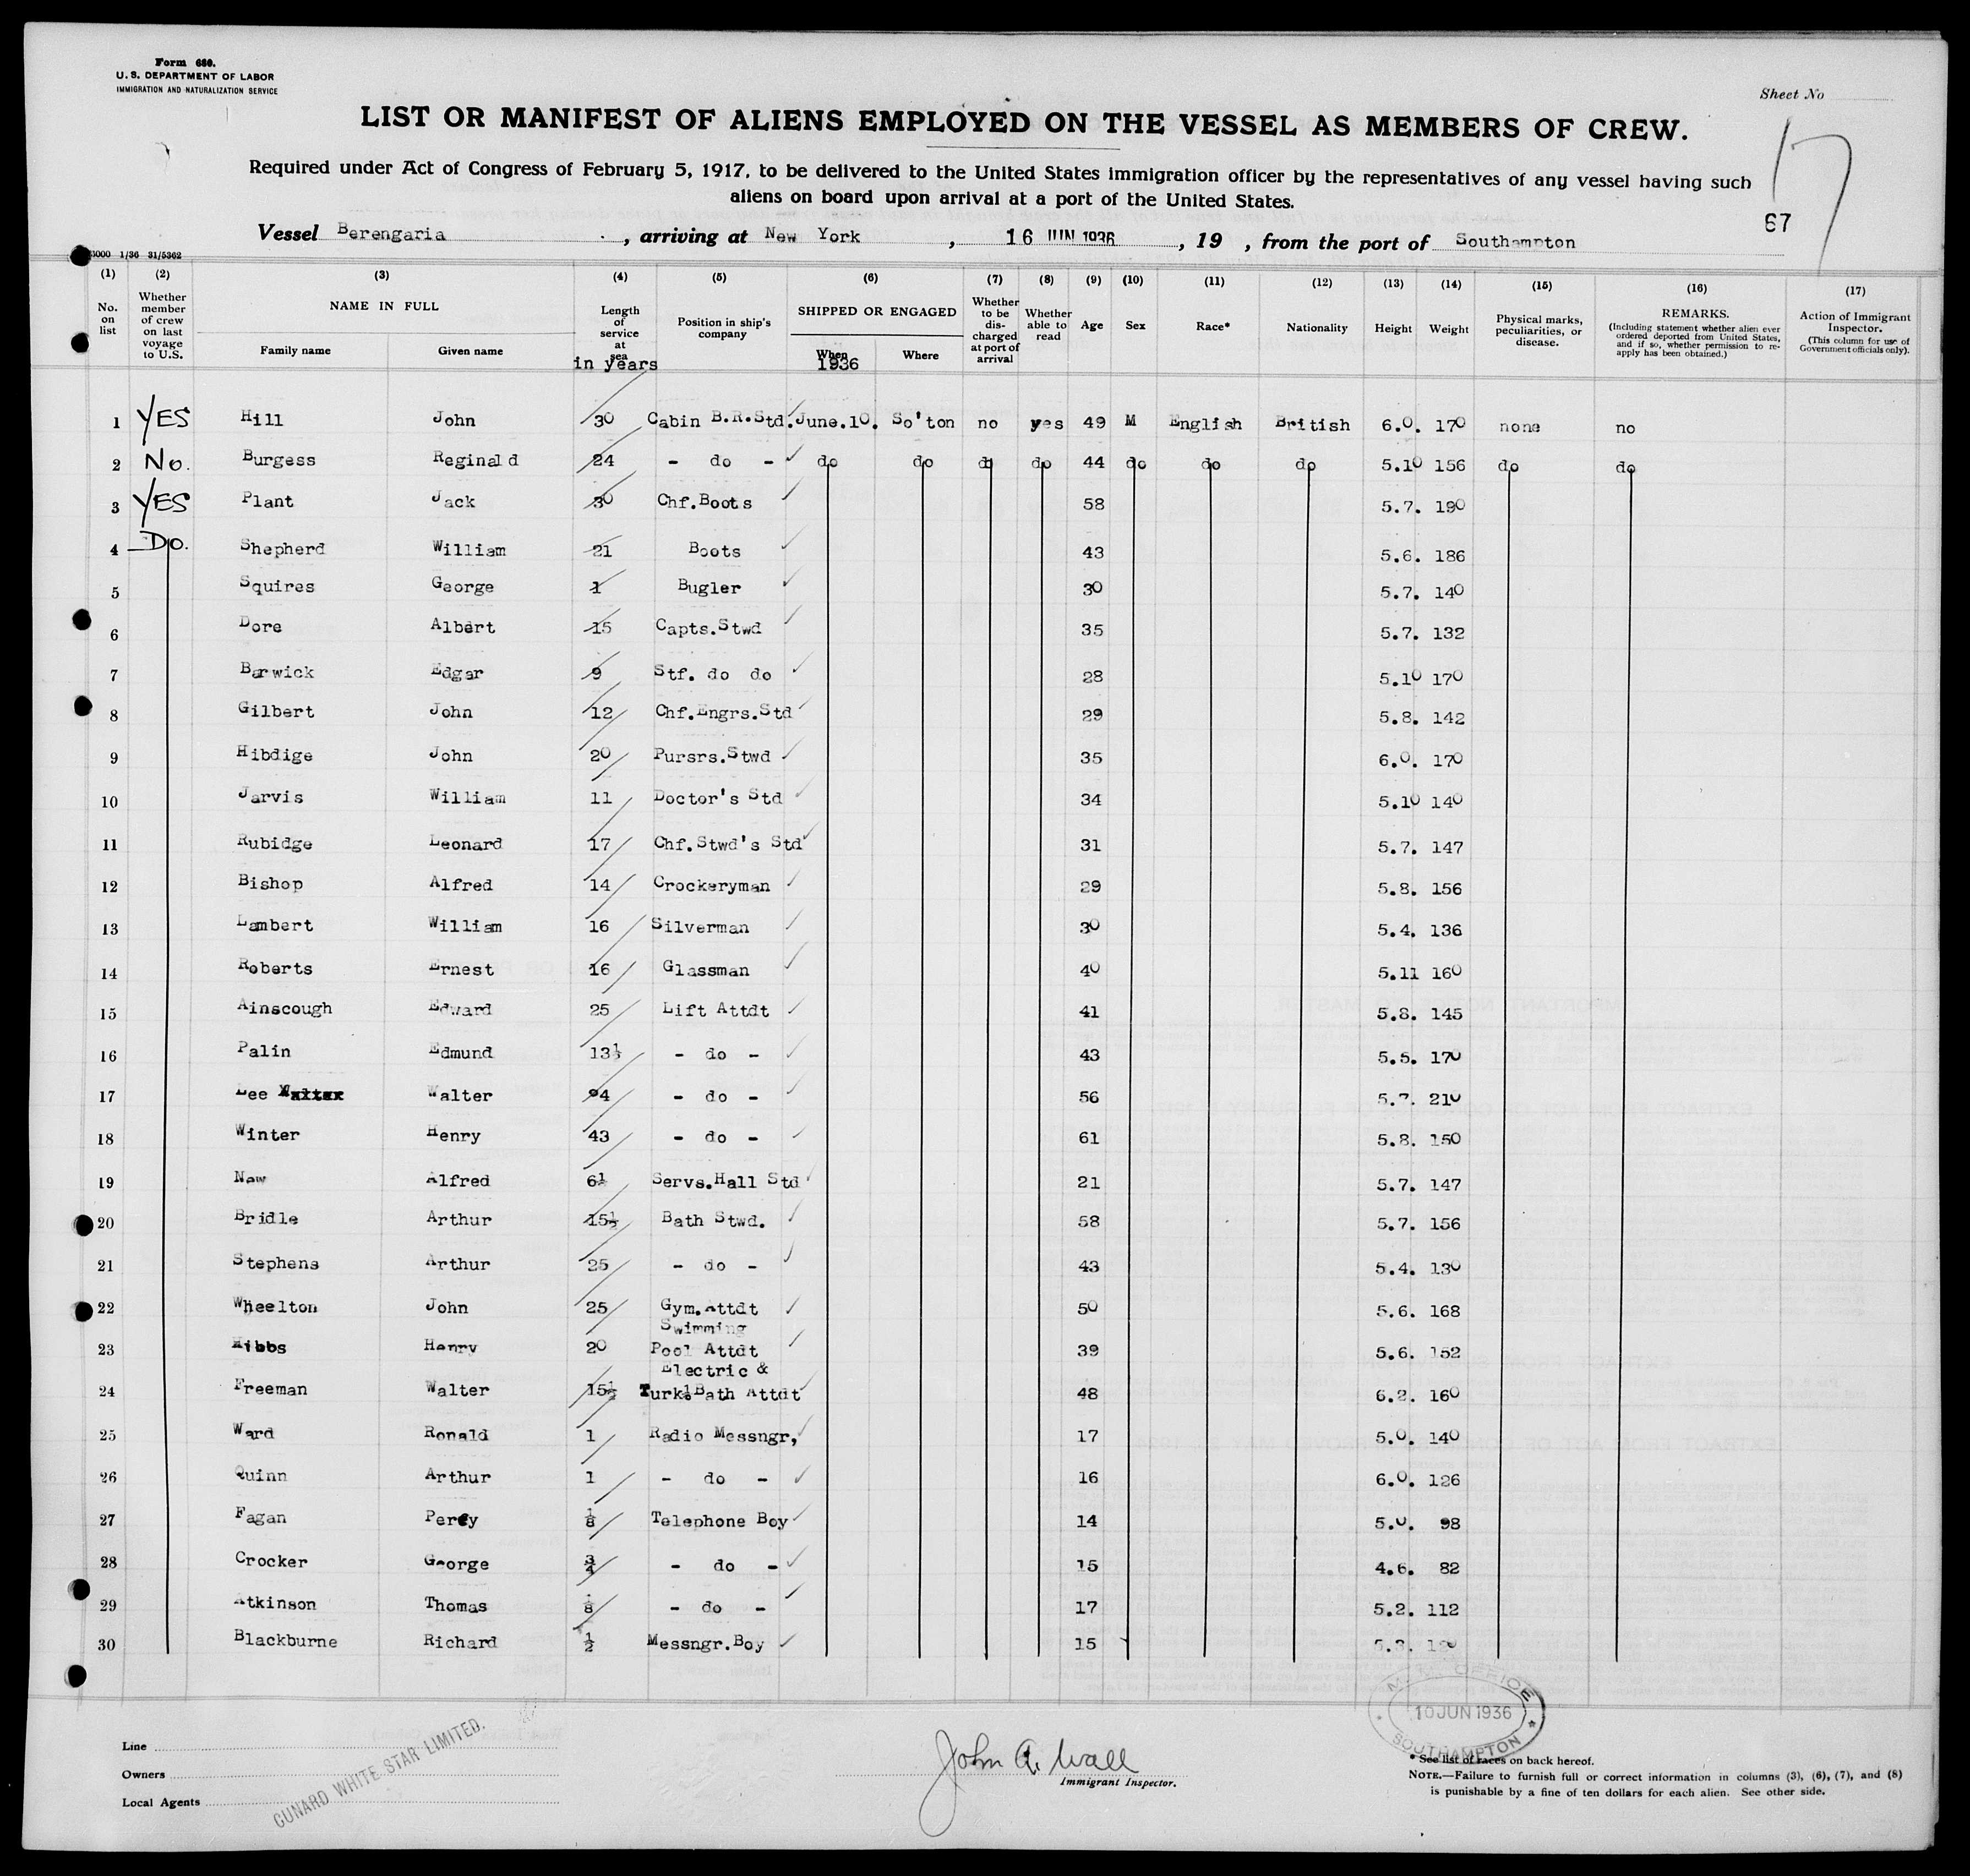 Form 680.
U. S. DEPARTMENT OF LABOR
IMMIGRATION AND NATURALIZATION SERVICE
Sheet No
LIST OR MANIFEST OF ALIENS EMPLOYED ON THE VESSEL AS MEMBERS OF CREW.
17
Required under Act of Congress of February 5, 1917, to be delivered to the United States immigration officer by the representatives of any vessel having such
aliens on board upon arrival at a port of the United States.
67
Vessel Berengaria , arriving at New York , 16 JUN 1936 , 19 , from the port of Southampton
1/36 31/5362
(1) (2) (3) (4) (5) (6) (7) (8) (9) (10) (11) (12) (13) (14) (15) (16) (17)
No. on list
Whether member of crew on last voyage to U.S.
NAME IN FULL
Family name Given name
Length of service at sea
in years
Position in ship's company
SHIPPED OR ENGAGED
When Where
1936
Whether to be discharged at port of arrival
Whether able to read
Age Sex Race* Nationality Height Weight
Physical marks, peculiarities, or disease.
REMARKS.
(Including statement whether alien ever ordered deported from United States, and if so, whether permission to re-apply has been obtained.)
Action of Immigrant Inspector.
(This column for use of Government officials only).
1 YES Hill John 30 Cabin B.R.Std. June.10. So'ton no yes 49 M English British 6.0. 170 none no
2 No. Burgess Reginald 24 - do - do do do do 44 do do do 5.10 156 do do
3 YES Plant Jack 30 Chf.Boots 58 5.7. 190
4 Do. Shepherd William 21 Boots 43 5.6. 186
5 Squires George 1 Bugler 30 5.7. 140
6 Dore Albert 15 Capts.Stwd 35 5.7. 132
7 Barwick Edgar 9 Stf. do do 28 5.10 170
8 Gilbert John 12 Chf.Engrs.Std 29 5.8. 142
9 Hibdige John 20 Pursrs.Stwd 35 6.0. 170
10 Jarvis William 11 Doctor's Std 34 5.10 140
11 Rubidge Leonard 17 Chf.Stwd's Std 31 5.7. 147
12 Bishop Alfred 14 Crockeryman 29 5.8. 156
13 Lambert William 16 Silverman 30 5.4. 136
14 Roberts Ernest 16 Glassman 40 5.11 160
15 Ainscough Edward 25 Lift Attdt 41 5.8. 145
16 Palin Edmund 13½ - do - 43 5.5. 170
17 Lee Walter 4 - do - 56 5.7. 210
18 Winter Henry 43 - do - 61 5.8. 150
19 New Alfred 6½ Servs.Hall Std 21 5.7. 147
20 Bridle Arthur 15½ Bath Stwd. 58 5.7. 156
21 Stephens Arthur 25 - do - 43 5.4. 130
22 Wheelton John 25 Gym.Attdt 50 5.6. 168
Swimming
23 Hibbs Henry 20 Pool Attdt 39 5.6. 152
Electric &
24 Freeman Walter 15½ Turk.Bath Attdt 48 6.2. 160
25 Ward Ronald 1 Radio Messngr, 17 5.0. 140
26 Quinn Arthur 1 - do - 16 6.0. 126
27 Fagan Percy ⅛ Telephone Boy 14 5.0. 98
28 Crocker George ¾ - do - 15 4.6. 82
29 Atkinson Thomas ⅛ - do - 17 5.2. 112
30 Blackburne Richard ½ Messngr.Boy 15
OFFICE
10 JUN 1936
SOUTHAMPTON
Line
Owners
Local Agents
CUNARD WHITE STAR LIMITED.
John A. Wall
Immigrant Inspector.
* See list of races on back hereof.
NOTE.—Failure to furnish full or correct information in columns (3), (6), (7), and (8)
is punishable by a fine of ten dollars for each alien. See other side.